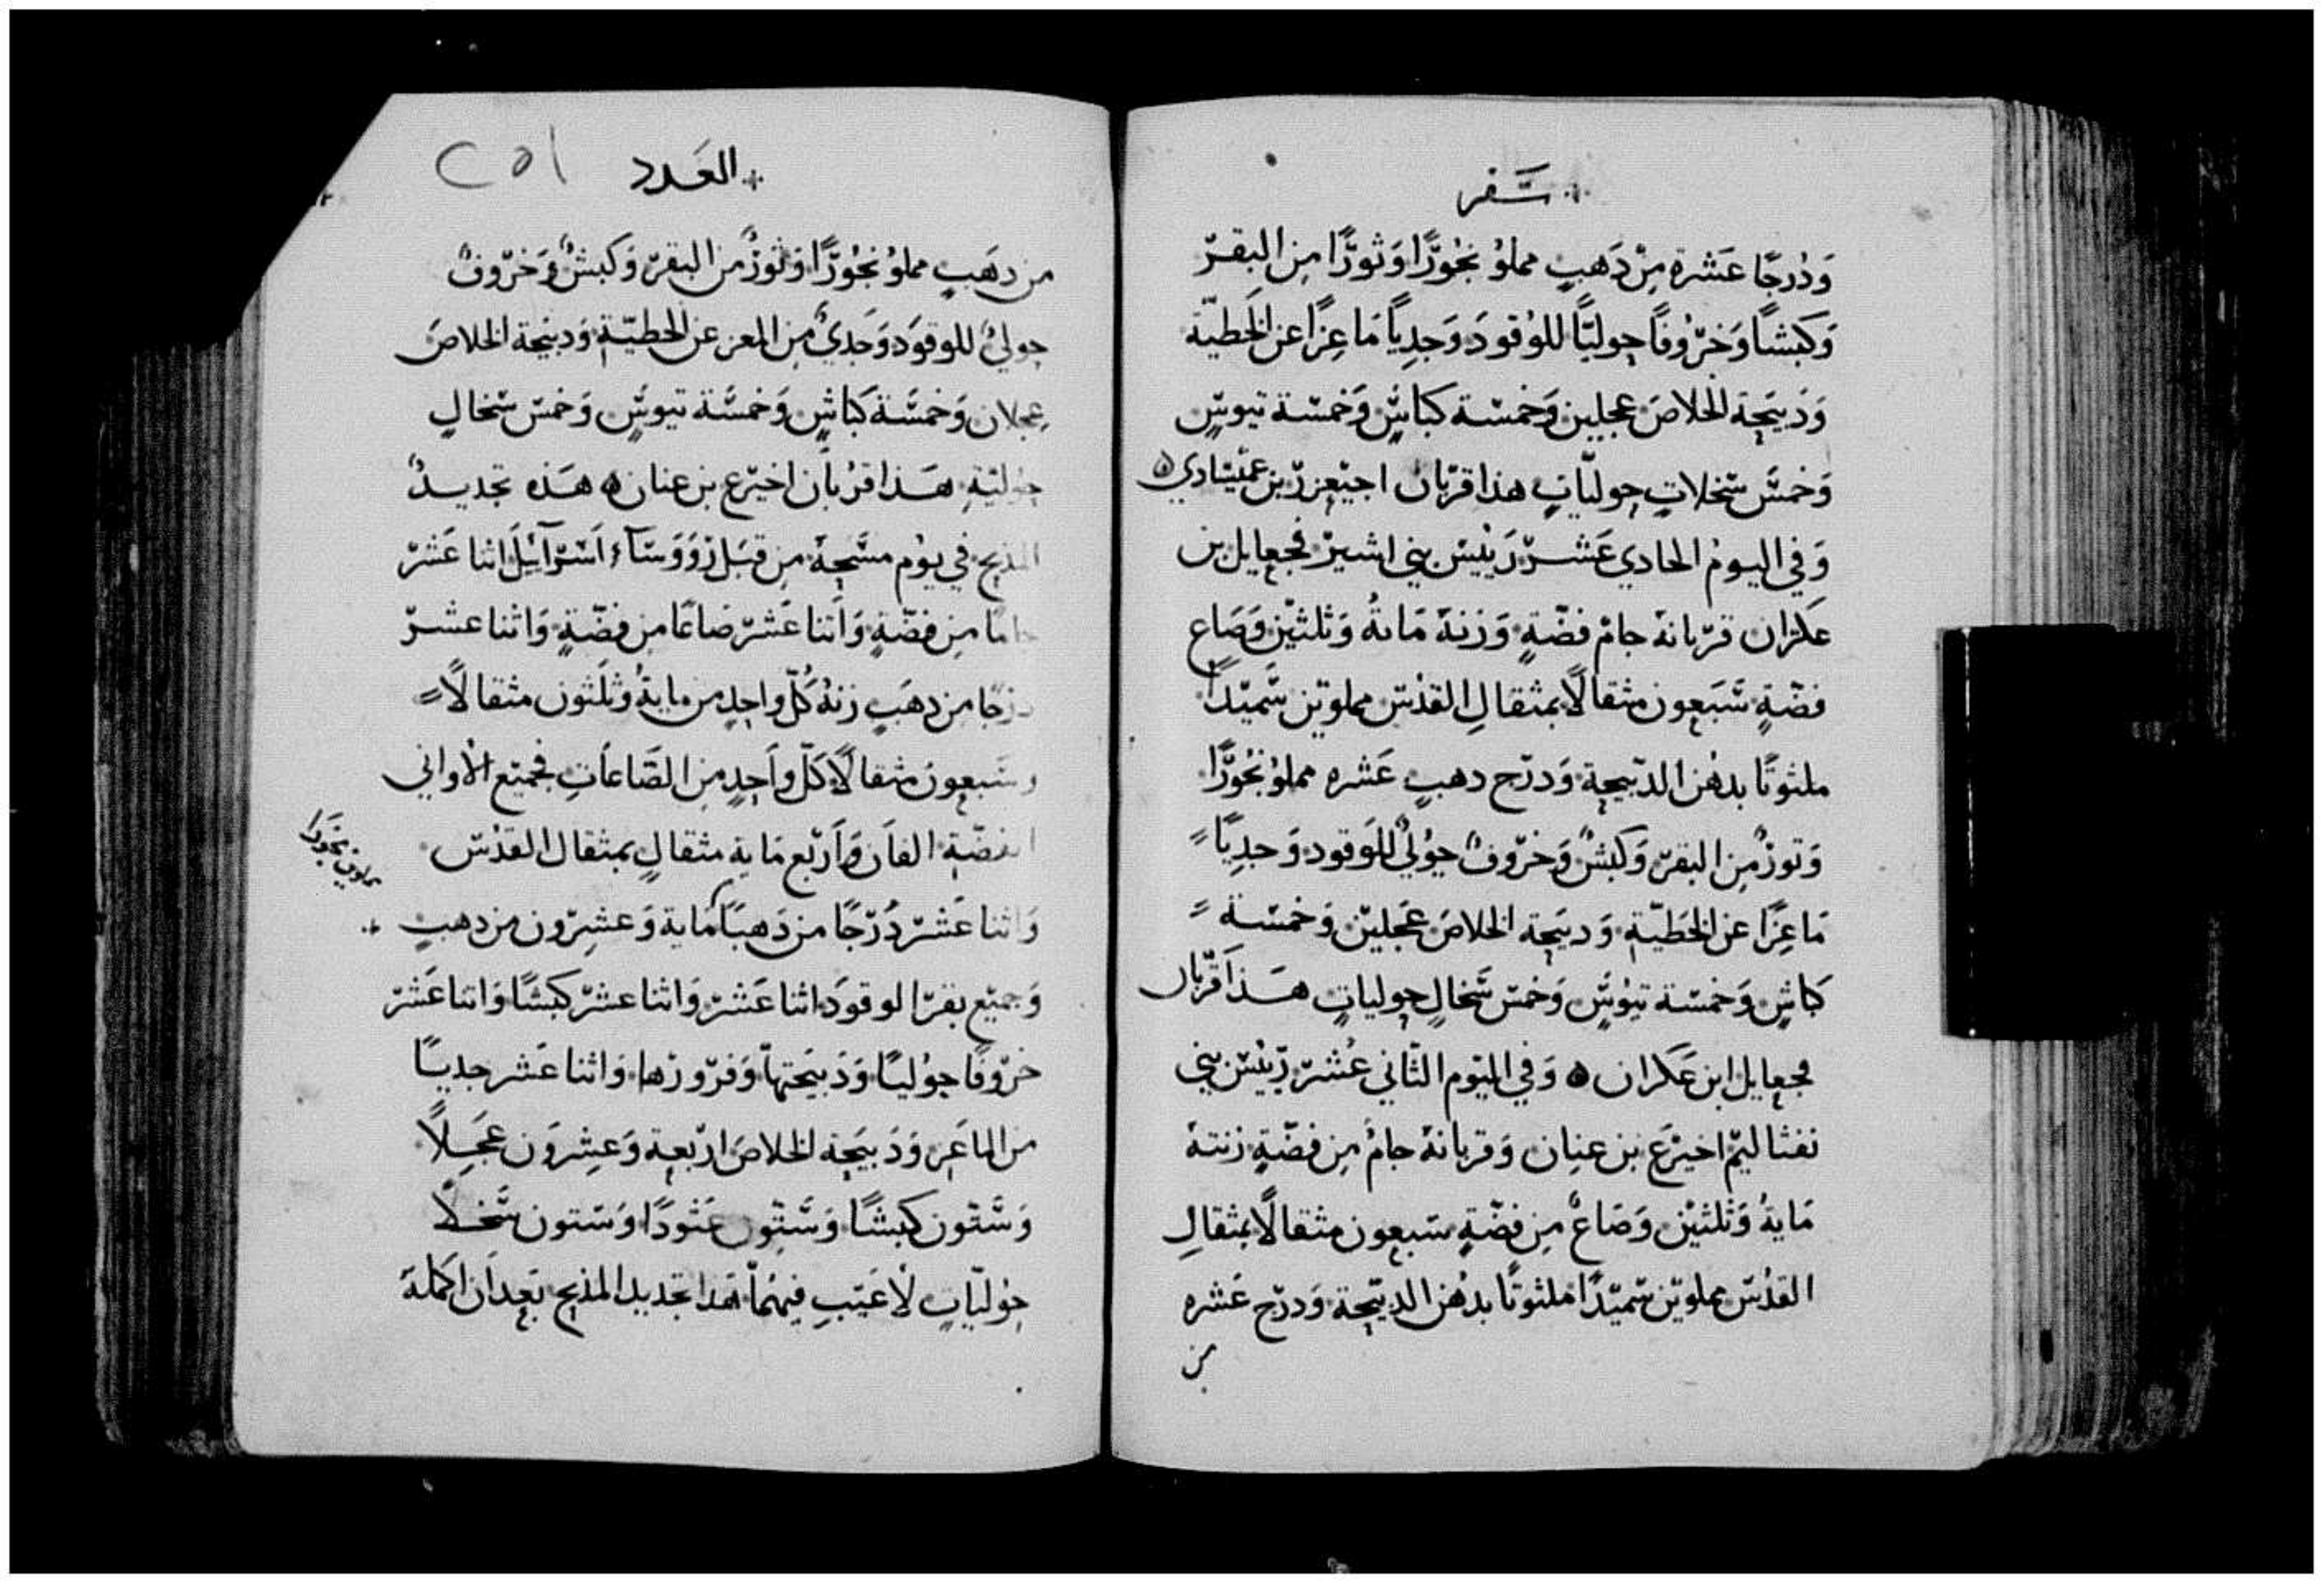 سَفر
وَدُرجًا عَشرة مِنْ دَهَبٍ مملوُ بخُورًا وَثورًا مِن البقرّ
وَكبشًا وَخرُوفًا حوليًّا للوُقودَ وَجدِياً مَاعِزًا عن الخَطيّة
وَدَبيَحة الخلاصَ عجلين وَخمسّة كباشٍ وَخمسّة تيوسٍ
وَخمسَّ سّخلاتٍ حوليّاتٍ هذا قربّان احيّعزرّ بن عمّيسّادي ه
وَفي اليومُ الحادي عَشرّ رَييسّ بني اشيرّ فجعايل بن
عكران قرّبانهَ جامْ فضّةٍ وَزنهَ مَايةُ وَثلثيّن وَصَاع
فضّةٍ سَّبَعون مثقالًا بمثقالِ القدُسّ مملوّين سَّميّدًا
ملثوتًا بدهُن الدبّيحة وَدرّج دهبٍ عَشره مملوُ بخُورًا
وَتورٌ مِن البقرّ وَكبشٌ وَخرّوفٌ حوُليٌ للوَقود وَجدِيًا
مَاعِزًا عن الخَطيّة وَدبيَحة الخلاصَ عَجلينّ وَخمسّة
كباشٍ وَخمسّة تيوُسٍّ وَخمسّ سَّخالٍ حولياتٍ هَذا قرّبان
فجعايل ابن عَكران ه وَفي اليّوم الثّاني عُشرّ رّييسّ بني
نفثاليمّ اخيرّع بن عنِان وَقربانهَ جامُ مِن فضّةٍ زنتهَ
مَايةُ وَثلثيّن وَصَاعٌ مِن فضّةٍ سّبعون مثقالًا بمثقالِ
القدُسّ مملوّين سّميّدًا ملثوتًا بدُهن الدبيّحة وَدرّج عَشره
من
العَدد
٢٥١
من دهَبٍ مملوُ بخُورًا وَثورٌ من البقرّ وَكبشٌ وَخرّوفٌ
حوليٌ للوقوَد وَجَديٌ مِن المعز عن الخَطيّة وَدبيَحة الخلاصَ
عِجلان وَخمسَّة كباشٍ وَخمسَّة تيوسٍّ وَخمسّ سّخالٍ
حوليّةِ هَذا قرُبان اخيرّع بن عنان ه هَذه تجديدٌ
المذبح في يوُم مسَّحهَ مِن قبَل رَووَسَآء اَسّرآئيلَ اثنا عَشرّ
جامًا مِن فضّةٍ وَاَثنا عَشرّ صَاعًا مِن فضّةٍ وَاثنا عشرّ
درجًا مِن دهَبٍ زنهُ كُلّ واحِدٍ من مايةُ وثَلَثون مثقالًا
وسَبعون مثقالًا كلّ واَحِدٍ مِن الصَّاعَاتِ فجميّع الأواني
الفضّةِ الفاَن وَاَرّبع مَاية مثقالٍ بمثقال القدسّ
وَاثنا عَشرّ دُرّجًا من دَهبَا مَاية وَعشرِون من دهبٍ
مملوين بخورًا
وَجميّع بقرّ الوقوَد اثنا عَشرّ وَاثنا عشرّ كبشًا وَاثنا عَشرّ
خرّوفًا حوُليًا وَدَبيَحتهاّ وَفرّوزها وَاثنا عَشر جديًا
من الماعَز وَدَبيَحة الخلاصَ ارّبعة وَعشِروَن عَجِلًا
وَسَّتون كبشًا وَسَّتّون عَثودًا وَستّون سَّخلًا
حوُليّاتٍ لاَ عَيبّ فيهُمّا هَذا تجديد المذبح بَعداَن اكَمَلهَ